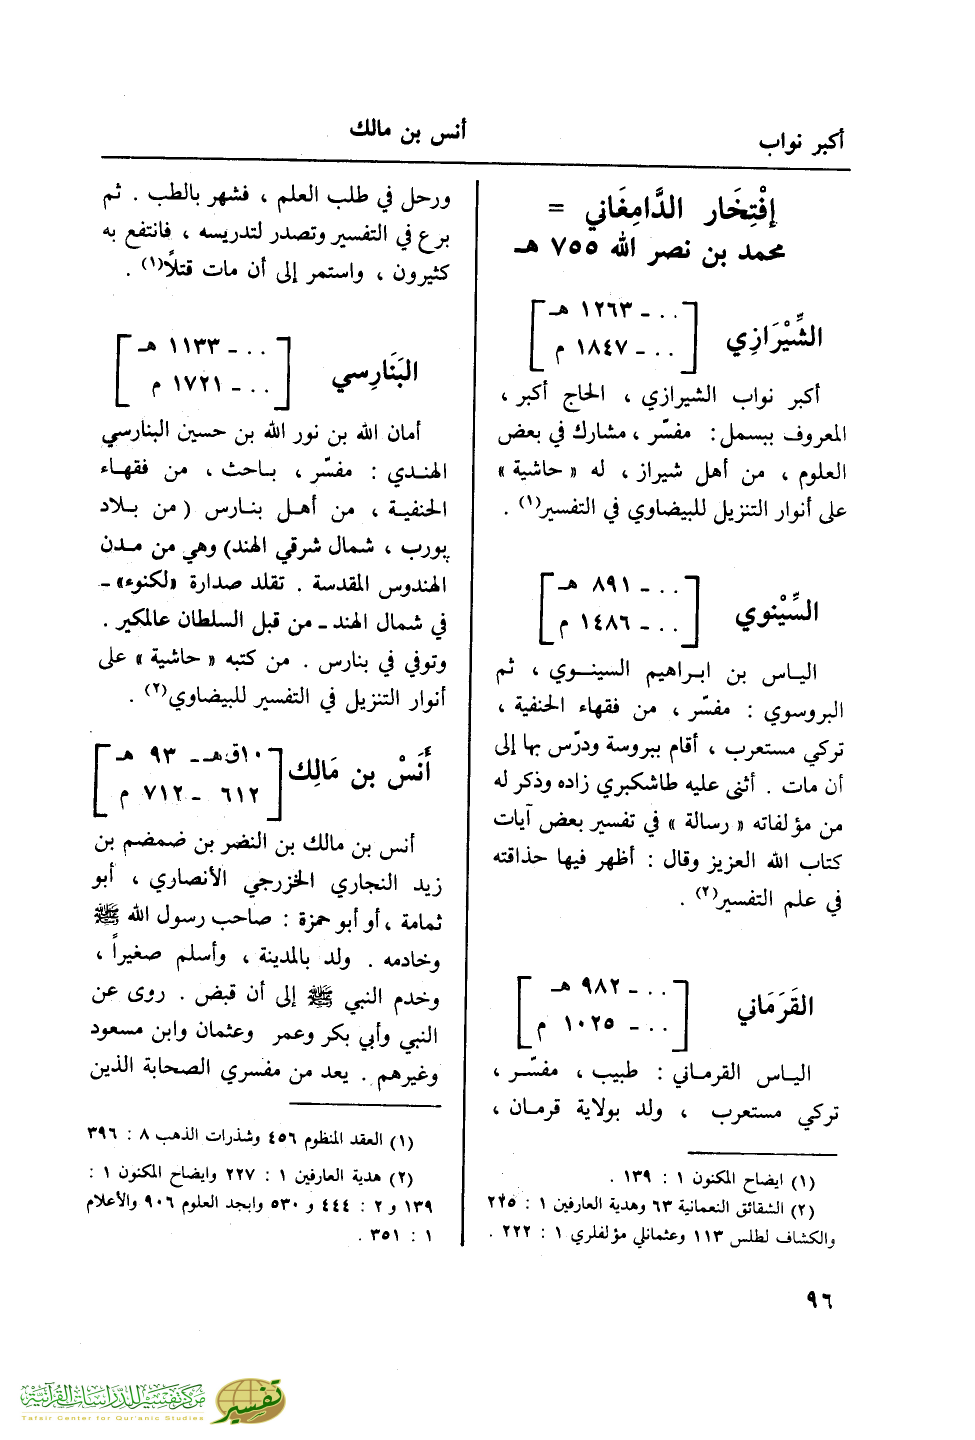 أكبر نواب
أنس بن مالك
إفْتِخَار الدَّامِغَاني =
محمد بن نصر الله ٧٥٥ هـ
الشِّيْرَازِي [ . . ـ ١٢٦٣ هـ
. . ـ ١٨٤٧ م ]
أكبر نواب الشيرازي ، الحاج أكبر ،
المعروف ببسمل : مفسّر ، مشارك في بعض
العلوم ، من أهل شيراز ، له « حاشية »
على أنوار التنزيل للبيضاوي في التفسير(١) .
السِّيْنوي [ . . ـ ٨٩١ هـ
. . ـ ١٤٨٦ م ]
الياس بن ابراهيم السينوي ، ثم
البروسوي : مفسّر ، من فقهاء الحنفية ،
تركي مستعرب ، أقام ببروسة ودرّس بها إلى
أن مات . أثنى عليه طاشكبري زاده وذكر له
من مؤلفاته « رسالة » في تفسير بعض آيات
كتاب الله العزيز وقال : أظهر فيها حذاقته
في علم التفسير(٢) .
القَرَمَاني [ . . ـ ٩٨٢ هـ
. . ـ ١٠٢٥ م ]
الياس القرماني : طبيب ، مفسّر ،
تركي مستعرب ، ولد بولاية قرمان ،
(١) ايضاح المكنون ١ : ١٣٩ .
(٢) الشقائق النعمانية ٦٣ وهدية العارفين ١ : ٢٢٥
والكشاف لطلس ١١٣ وعثمانلي مؤلفلري ١ : ٢٢٢ .
ورحل في طلب العلم ، فشهر بالطب . ثم
برع في التفسير وتصدر لتدريسه ، فانتفع به
كثيرون ، واستمر إلى أن مات قتلاً(١) .
البَنَارِسي [ . . ـ ١١٣٣ هـ
. . ـ ١٧٢١ م ]
أمان الله بن نور الله بن حسين البنارسي
الهندي : مفسّر ، باحث ، من فقهاء
الحنفية ، من أهل بنارس ( من بلاد
پورب ، شمال شرقي الهند) وهي من مدن
الهندوس المقدسة . تقلد صدارة «لكنوء» ـ
في شمال الهند ـ من قبل السلطان عالمكير .
وتوفي في بنارس . من كتبه « حاشية » على
أنوار التنزيل في التفسير للبيضاوي(٢) .
أَنَسْ بن مَالِك [ ١٠ق هـ ـ ٩٣ هـ
٦١٢ ـ ٧١٢ م ]
أنس بن مالك بن النضر بن ضمضم بن
زيد النجاري الخزرجي الأنصاري ، أبو
ثمامة ، أو أبو حمزة : صاحب رسول الله ﷺ
وخادمه . ولد بالمدينة ، وأسلم صغيراً ،
وخدم النبي ﷺ إلى أن قبض . روى عن
النبي وأبي بكر وعمر وعثمان وابن مسعود
وغيرهم . يعد من مفسري الصحابة الذين
(١) العقد المنظوم ٤٥٦ وشذرات الذهب ٨ : ٣٩٦
(٢) هدية العارفين ١ : ٢٢٧ وايضاح المكنون ١ :
١٣٩ و ٢ : ٤٤٤ و ٥٣٠ وابجد العلوم ٩٠٦ والأعلام
١ : ٣٥١ .
٩٦
مركز تفسير للدراسات القرآنية
Tafsir Center for Qur'anic Studies
تفسير